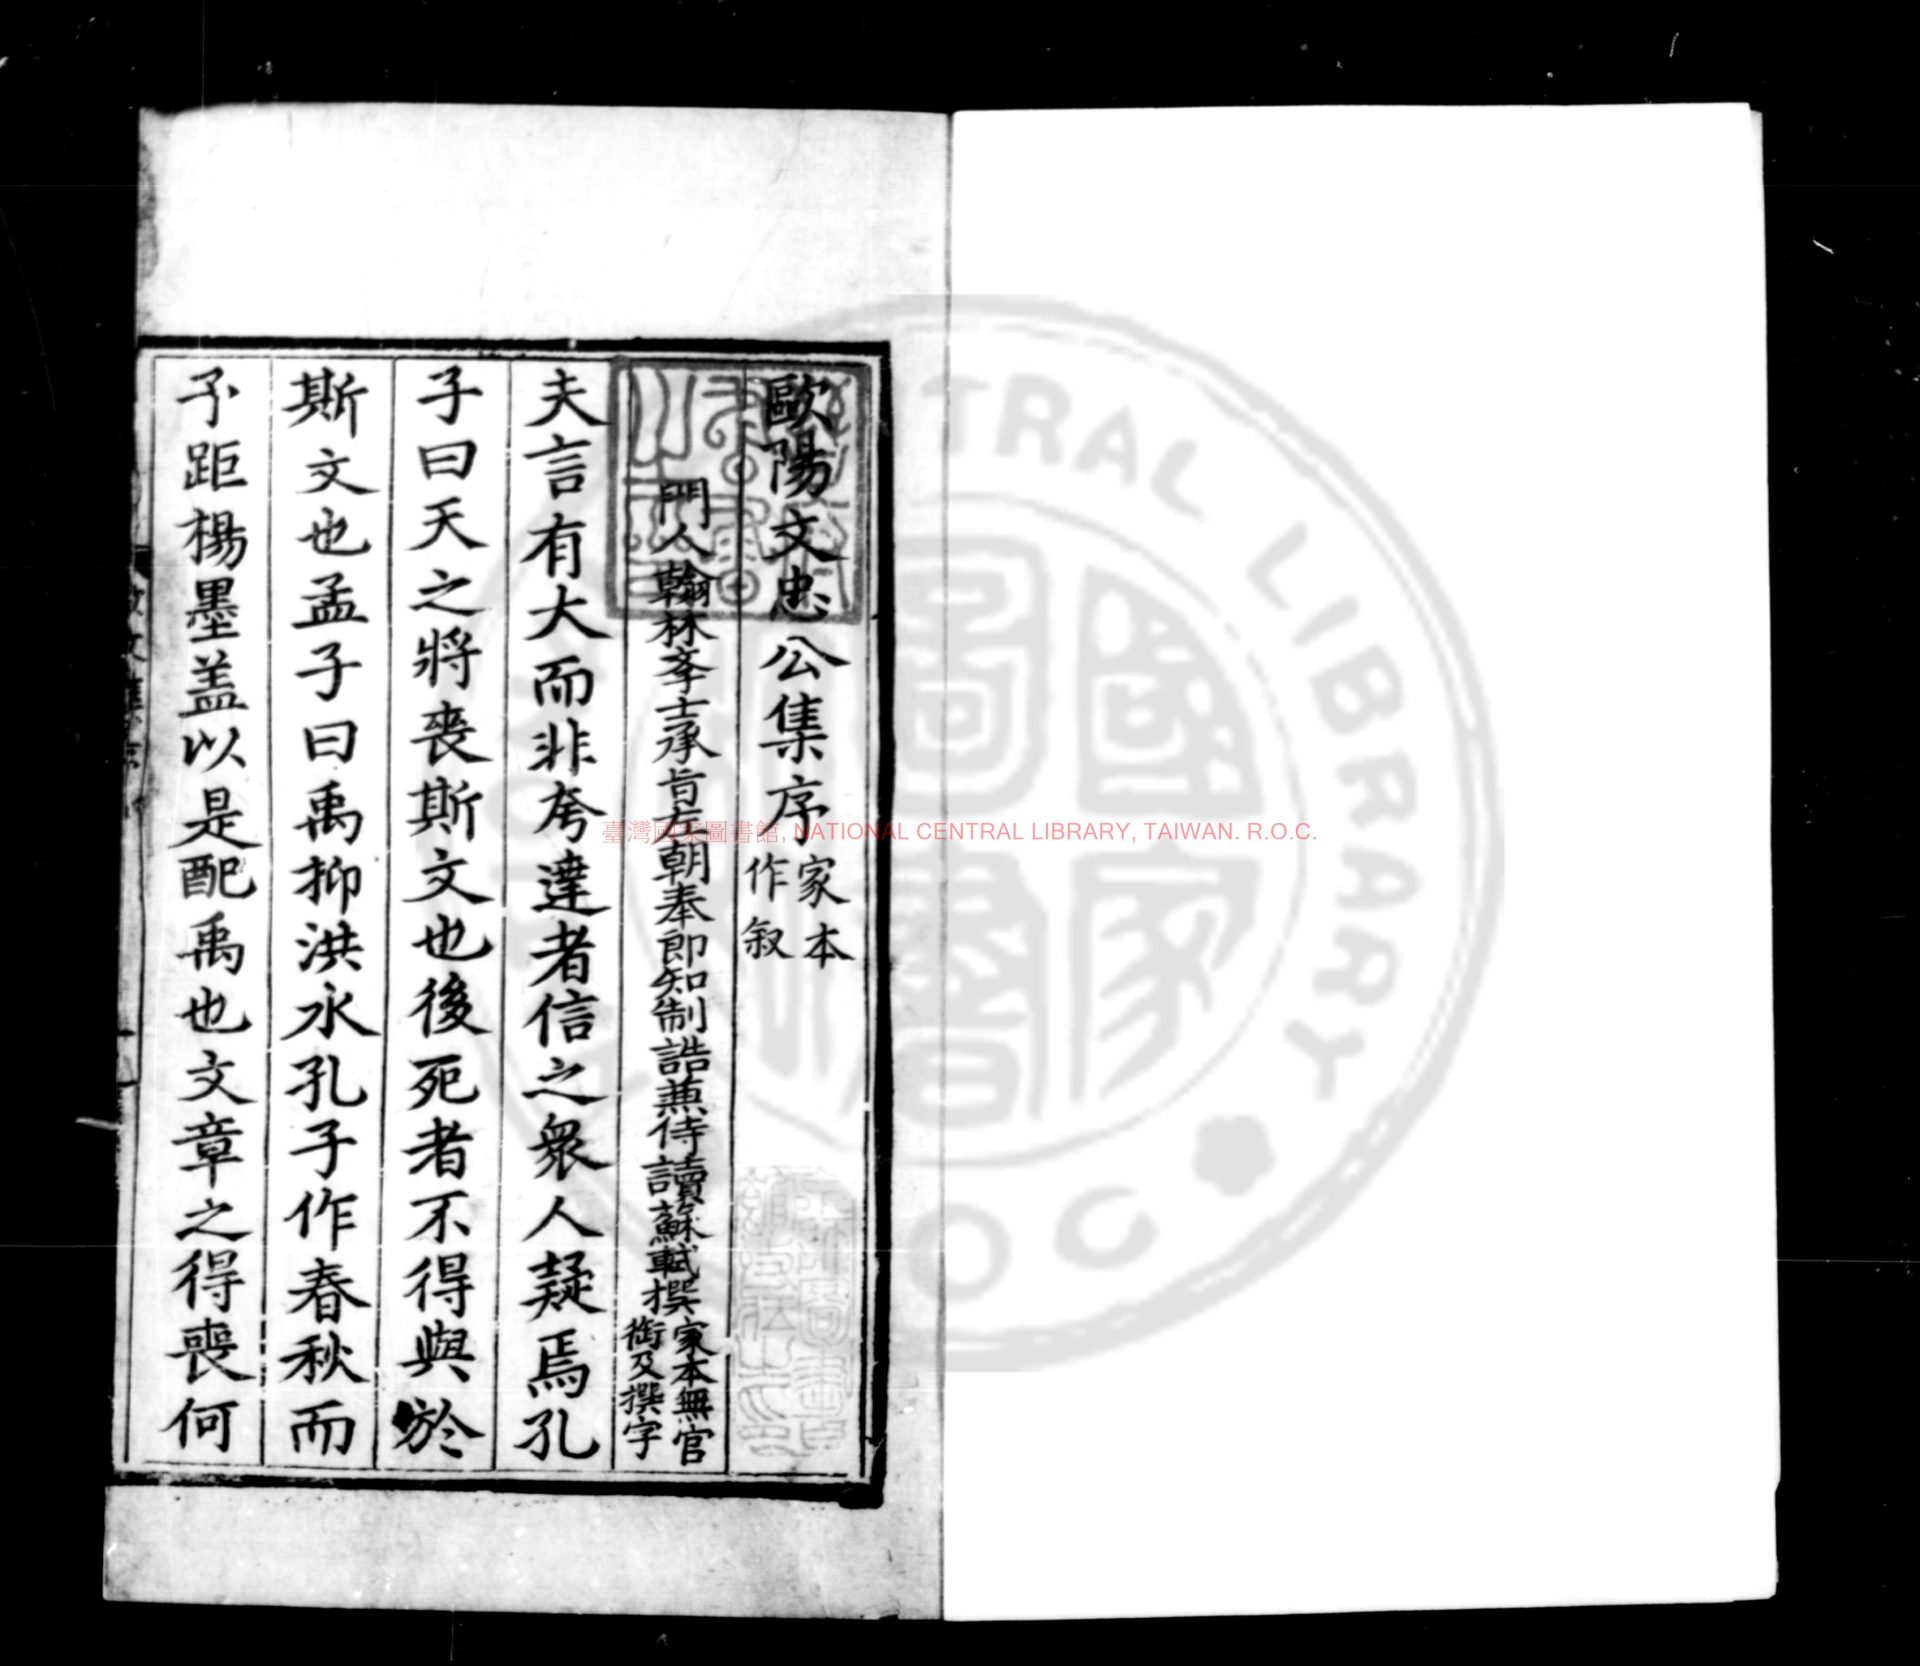 歐陽文忠公集序家本作叙
門人翰林李士承㫖左朝奉郎知制誥兼侍讀蘇軾撰家本無官銜及撰字
夫言有大而非夸達者信之衆人疑焉孔
子曰天之將喪斯文也後死者不得與於
斯文也孟子曰禹抑洪水孔子作春秋而
予距楊墨盖以是配禹也文章之得喪何
臺灣國家圖書館, NATIONAL CENTRAL LIBRARY, TAIWAN. R.O.C.